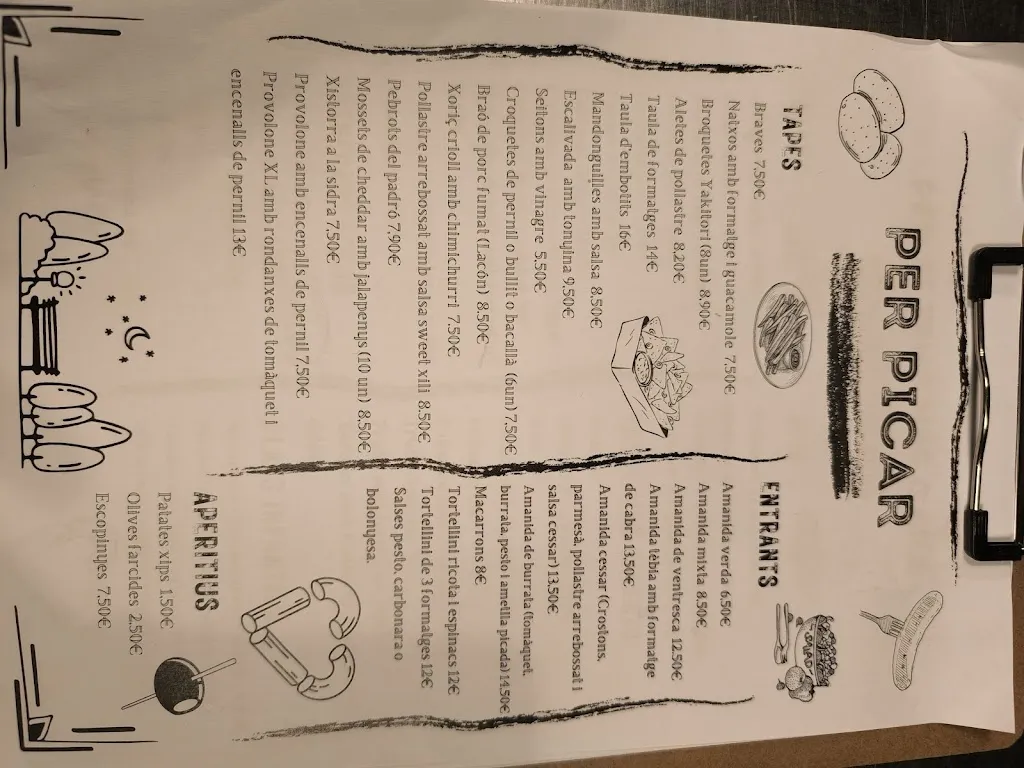 PER PICAR
TAPES
Braves 7.50€
Natxos amb formatge i guacamole 7.50€
Broquetes Yakitori (8un) 8.90€
Aletes de pollastre 8.20€
Taula de formatges 14€
Taula d'embolits 16€
Mandonguilles amb salsa 8.50€
Escalivada amb tonyina 9.50€
Seitons amb vinagre 5.50€
Croquetes de pernil o bullit o bacallà (6un) 7.50€
Braó de porc fumat (Lacón) 8.50€
Xoriç crioll amb chimichurri 7.50€
Pollastre arrebossat amb salsa sweet xili 8.50€
Pebrots del padró 7.90€
Mossets de cheddar amb jalapenys (10 un) 8.50€
Xistorra a la sidra 7.50€
Provolone amb encenalls de pernil 7.50€
Provolone XL amb rondanxes de tomàquet i
encenalls de pernil 13€
ENTRANTS
Amanida verda 6.50€
Amanida mixta 8.50€
Amanida de ventresca 12.50€
Amanida tèbia amb formatge
de cabra 13.50€
Amanida cessar (Crostons,
parmesà, pollastre arrebossat i
salsa cessar) 13.50€
Amanida de burrata (tomàquet,
burrata, pesto i ametlla picada) 14.50€
Macarrons 8€
Tortellini ricota i espinacs 12€
Tortellini de 3 formatges 12€
Salses pesto, carbonara o
bolonyesa.
APERITIUS
Patates xips 1.50€
Olives farcides 2.50€
Escopinyes 7.50€